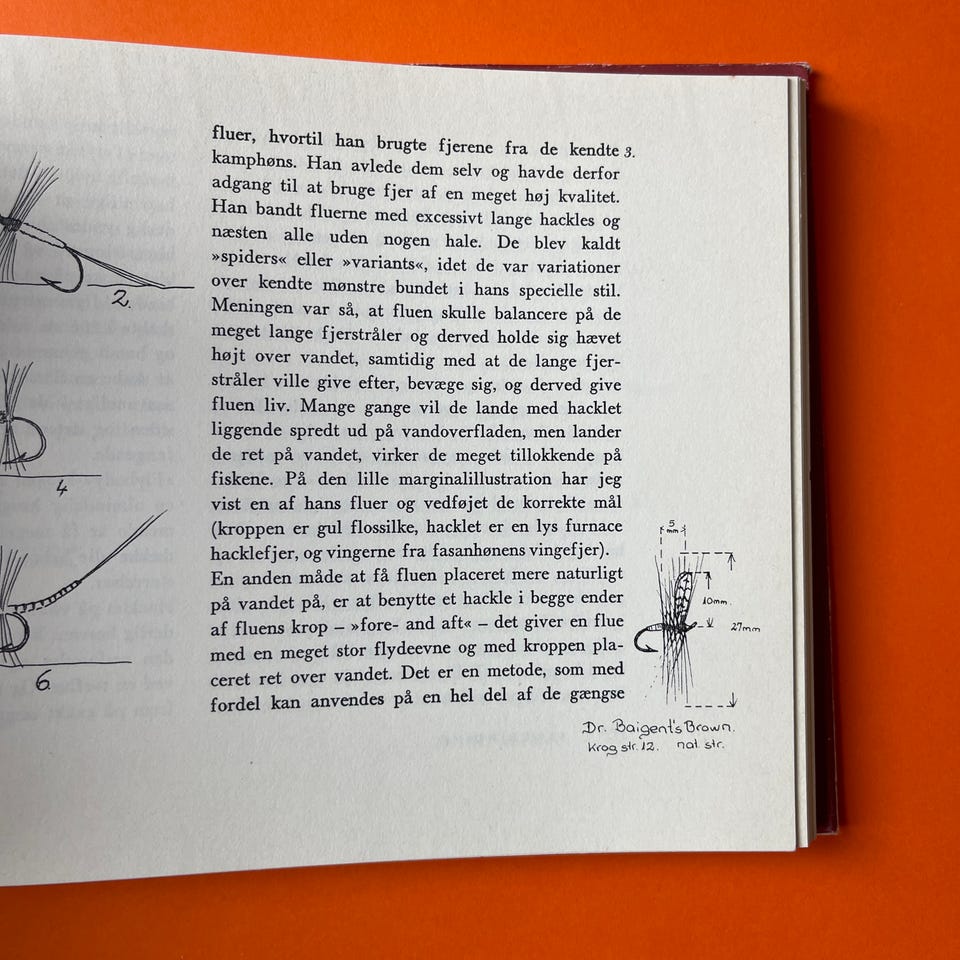 fluer, hvortil han brugte fjerene fra de kendte 3.
kamphøns. Han avlede dem selv og havde derfor
adgang til at bruge fjer af en meget høj kvalitet.
Han bandt fluerne med excessivt lange hackles og
næsten alle uden nogen hale. De blev kaldt
»spiders« eller »variants«, idet de var variationer
over kendte mønstre bundet i hans specielle stil.
Meningen var så, at fluen skulle balancere på de
meget lange fjerstråler og derved holde sig hævet
højt over vandet, samtidig med at de lange fjer-
stråler ville give efter, bevæge sig, og derved give
fluen liv. Mange gange vil de lande med hacklet
liggende spredt ud på vandoverfladen, men lander
de ret på vandet, virker de meget tillokkende på
fiskene. På den lille marginalillustration har jeg
vist en af hans fluer og vedføjet de korrekte mål
(kroppen er gul flossilke, hacklet er en lys furnace
hacklefjer, og vingerne fra fasanhønens vingefjer).
En anden måde at få fluen placeret mere naturligt
på vandet på, er at benytte et hackle i begge ender
af fluens krop – »fore- and aft« – det giver en flue
med en meget stor flydeevne og med kroppen pla-
ceret ret over vandet. Det er en metode, som med
fordel kan anvendes på en hel del af de gængse
2.
4
6.
5
mm
10mm.
27mm
Dr. Baigent's Brown.
Krog str. 12. nat. str.